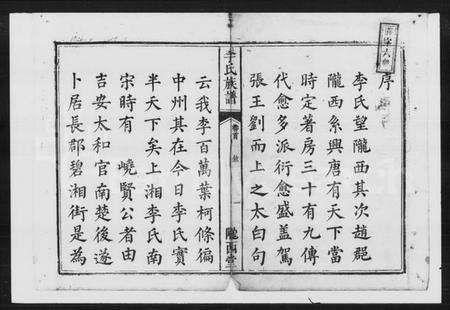 序
李氏望隴西其次趙郡
隴西系興唐有天下當
時定著房三十有九傳
代愈多派衍愈盛蓋駕
張王劉而上之太白句
李氏族譜
卷首 序 一
隴西堂
云我李百萬葉柯條徧
中州其在今日李氏實
半天下矣上湘李氏南
宋時有 嶢賢公者由
吉安太和官南楚後遂
卜居長郡碧湘街是為